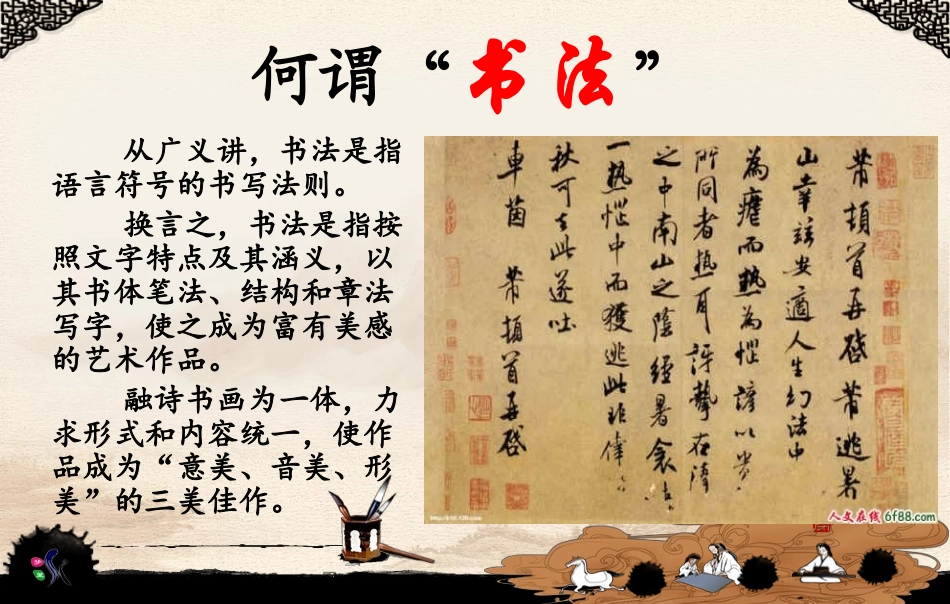 何谓“书法”
从广义讲，书法是指
语言符号的书写法则。
换言之，书法是指按
照文字特点及其涵义，以
其书体笔法、结构和章法
写字，使之成为富有美感
的艺术作品。
融诗书画为一体，力
求形式和内容统一，使作
品成为“意美、音美、形
美”的三美佳作。
芾頓首再啓芾逃暑
山幸兹安適人生幻法中
為虐而熱為惱諺以貴
所同者熱耳訝摯在清
之中南山之陰經暑衾
一熱惱中而獲逃此非偉
秋可去此遂吐
車茵 芾頓首再啓
人文在线 6f88.com